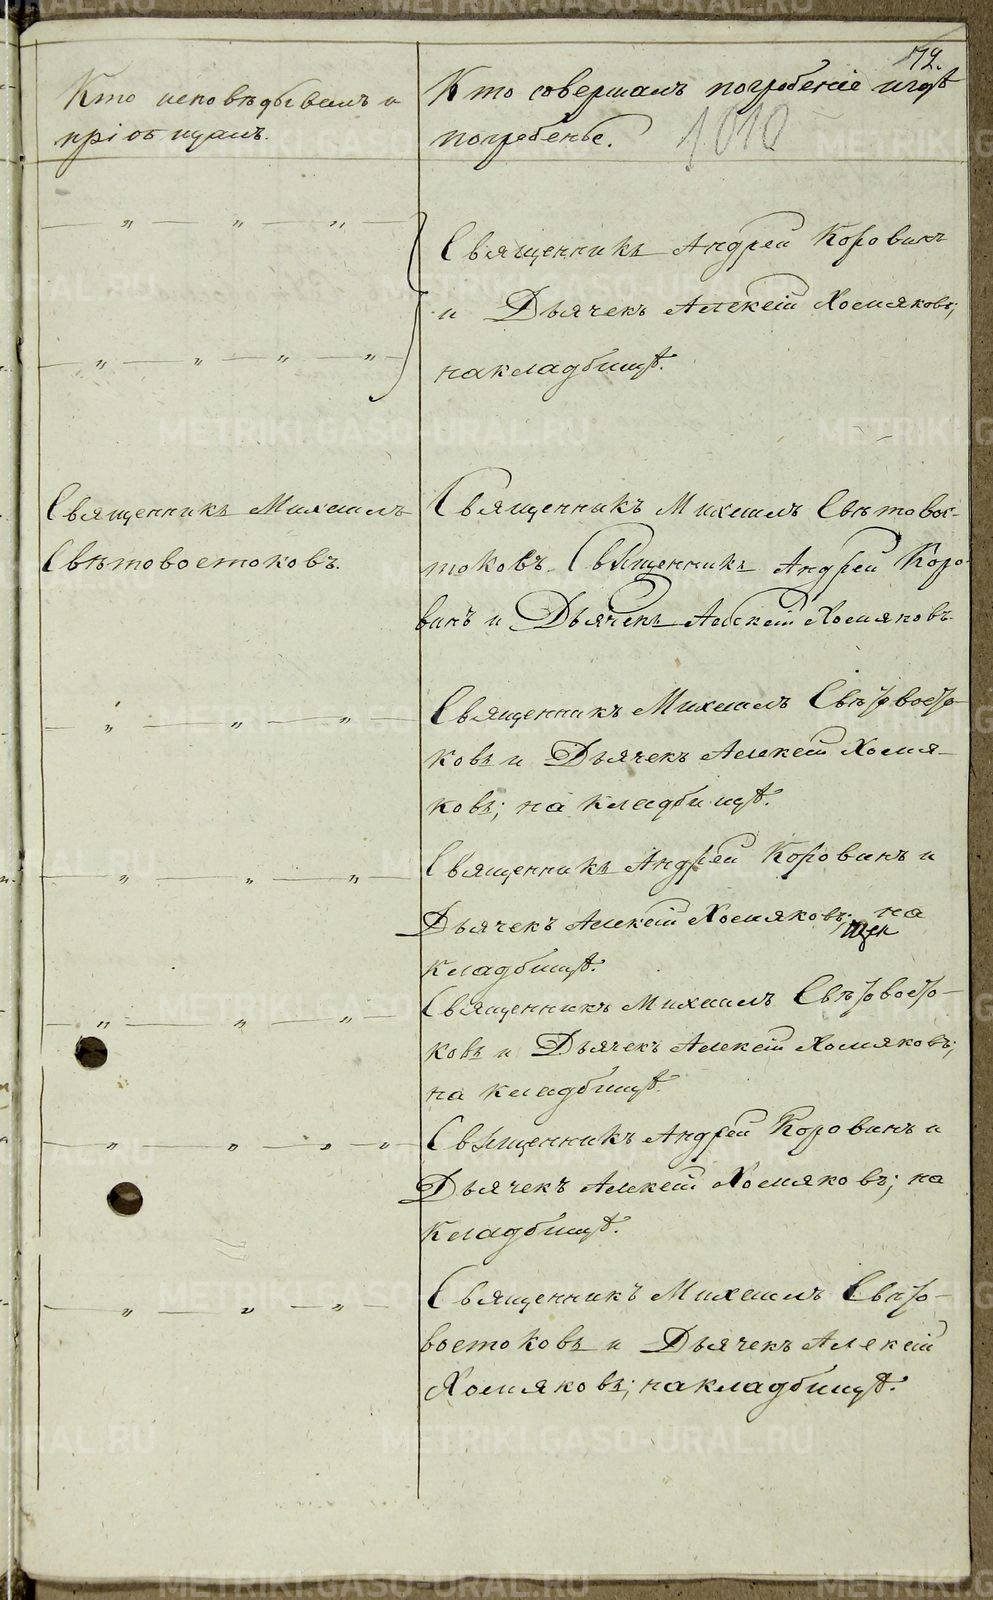 172.
Кто исповѣдывалъ и
пріобщалъ.
Кто совершалъ погребеніе и гдѣ
погребены.
1010
— „ — „ — „ —
— „ — „ — „ — „ —
Священникъ Андрей Коровинъ
и Дьячекъ Алексѣй Хомяковъ;
на кладбищѣ.
Священникъ Михаилъ
Свѣтовостоковъ.
Священникъ Михаилъ Свѣтовос-
токовъ. Священникъ Андрей Коро-
винъ и Дьячекъ Алексѣй Хомяковъ.
— „ — „ — „ —
Священникъ Михаилъ Свѣтовосто-
ковъ и Дьячекъ Алексѣй Хомя-
ковъ; на кладбищѣ.
— „ — „ — „ —
Священникъ Андрей Коровинъ и
Дьячекъ Алексѣй Хомяковъ; на
кладбищѣ.
— „ — „ — „ —
Священникъ Михаилъ Свѣтовосто-
ковъ и Дьячекъ Алексѣй Хомяковъ;
на кладбищѣ.
— „ — „ — „ — „ —
Священникъ Андрей Коровинъ и
Дьячекъ Алексѣй Хомяковъ; на
кладбищѣ.
— „ — „ — „ —
Священникъ Михаилъ Свѣто-
востоковъ и Дьячекъ Алексѣй
Хомяковъ; на кладбищѣ.
METRIKI.GASO-URAL.RU